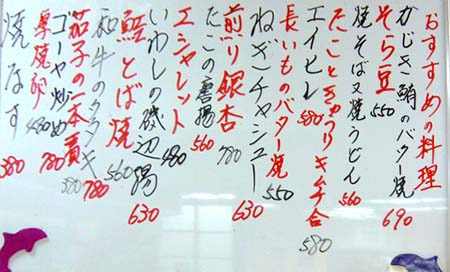 おすすめの料理
かじき鮪のバター焼 690
そら豆 550
焼そば又焼うどん 560
たこときゅうりキムチ合 580
エイヒレ 580
長いものバター焼 550
ねぎチャシュー 630
煎り銀杏 780
たこの唐揚 560
エシャレット 480
いわしの磯辺揚 630
鮭とば焼 630
和牛のタタキ 780
茄子の一本漬 580
ゴーヤ炒め 780
厚焼卵 480
焼なす 580